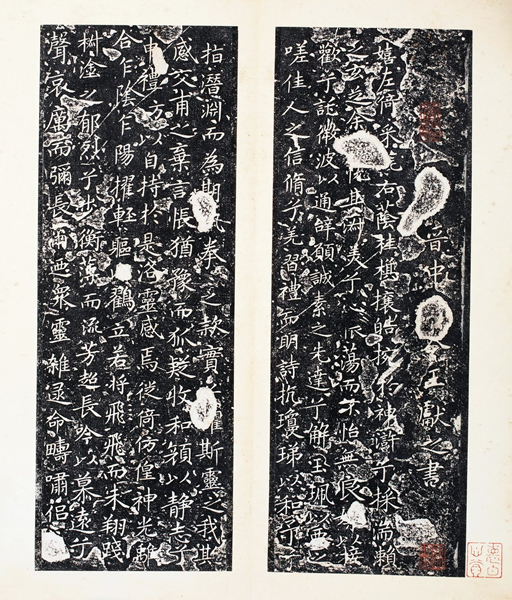 晉中令王獻之書
嬉左倚采旄右蔭桂旗攘皓捥於神滸兮採湍瀨
之玄芝余悅其淑美兮心振蕩而不怡無良以接
歡兮託微波以通辭願誠素之先達兮解玉珮以要之
嗟佳人之信脩兮羌習禮而明詩抗瓊珶以和予兮
指潛淵而為期執之款實懼斯靈之我欺
感交甫之棄言悵猶豫而狐疑收和顏以靜志兮
申禮防以自持於是洛靈感焉徙倚仿偟神光離
合乍陰乍陽擢輕軀以鶴立若將飛飛而未翔踐
椒塗之郁烈兮步衡薄而流芳超長吟以慕遠兮
聲哀厲而彌長爾迺眾靈雜遝命疇嘯侶